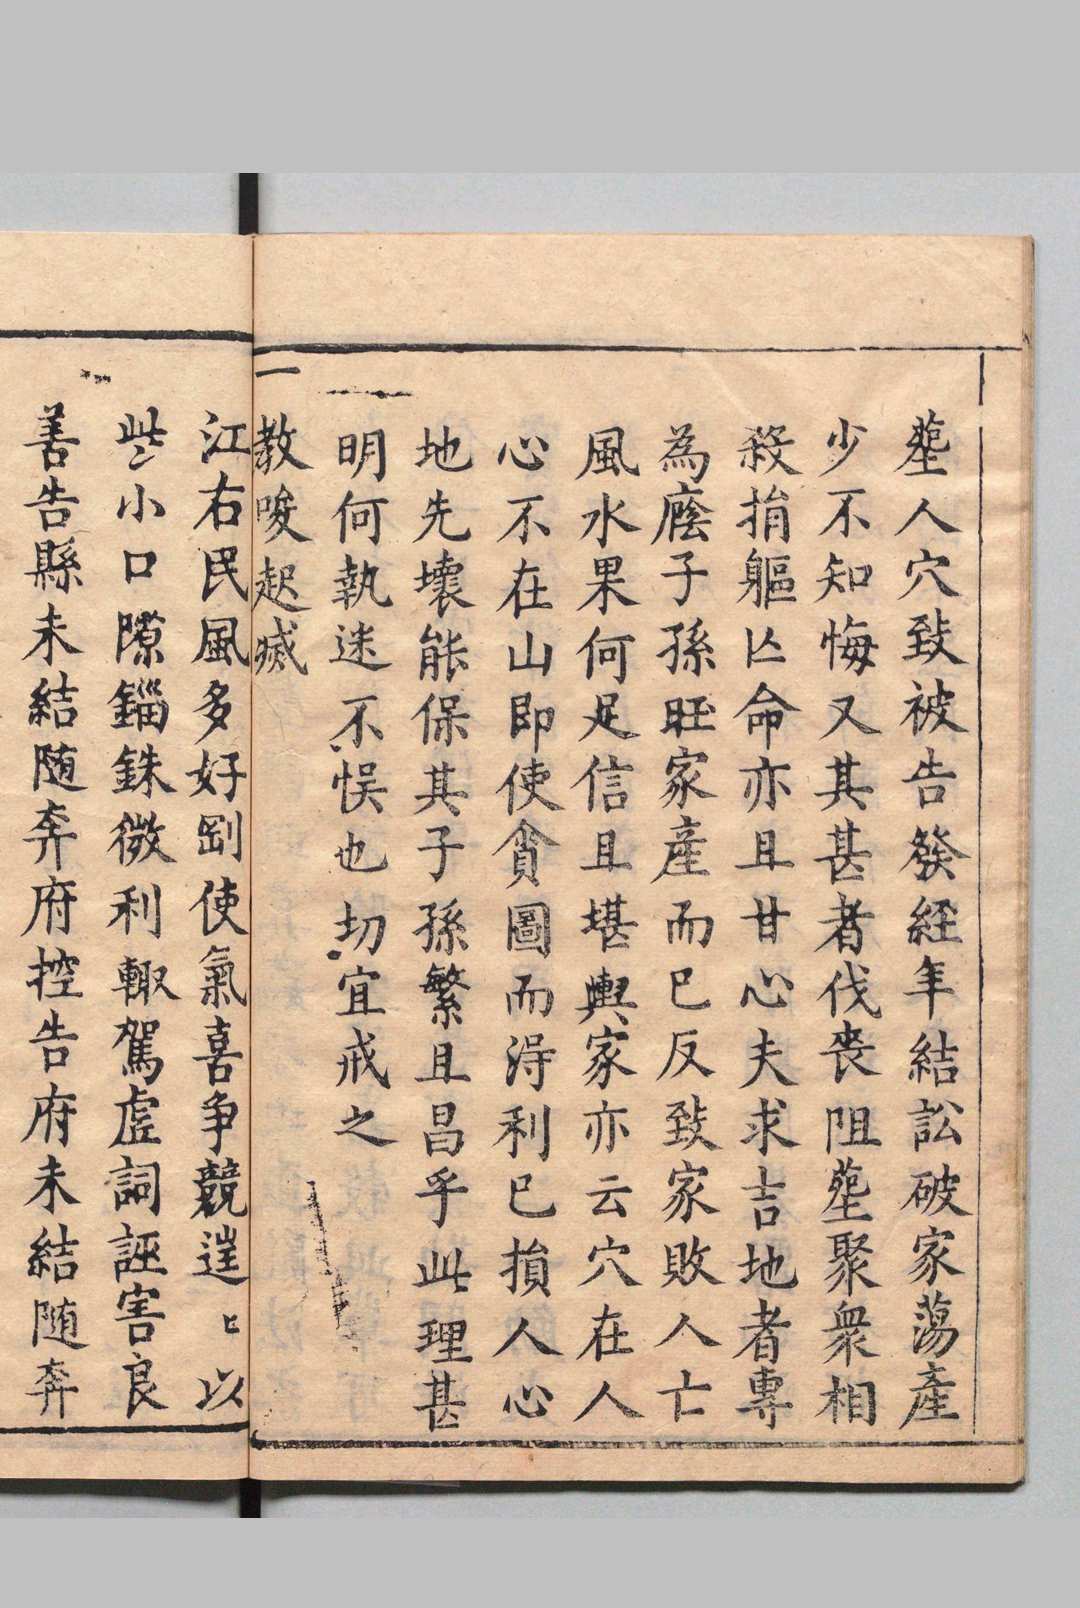 塟人穴致被告發經年結訟破家蕩產
少不知悔又其甚者伐喪阻塟聚衆相
殺捐軀亾命亦且甘心夫求吉地者專
為廕子孫旺家產而已反致家敗人亡
風水果何足信且堪輿家亦云穴在人
心不在山即使貪圖而淂利已損人心
地先壞能保其子孫繁且昌乎此理甚
明何執迷不悮也切宜戒之
一
教唆起烕
江右民風多好剛使氣喜爭競逞匕以
些小口隙錙銖微利輙駕虗詞誣害良
善告縣未結随奔府控告府未結随奔